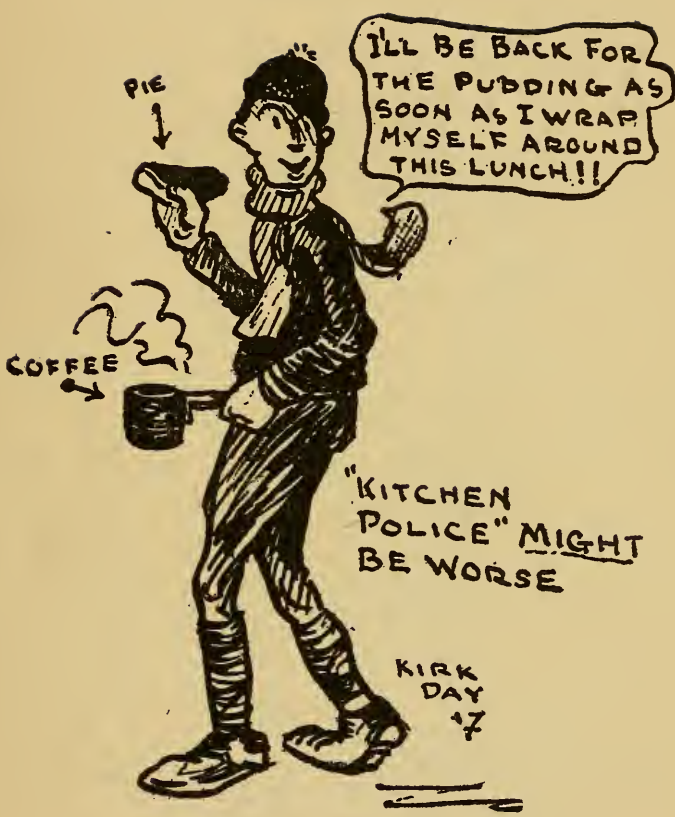 PIE
I'LL BE BACK FOR
THE PUDDING AS
SOON AS I WRAP
MYSELF AROUND
THIS LUNCH!!
COFFEE
"KITCHEN
POLICE" MIGHT
BE WORSE
KIRK
DAY
'7